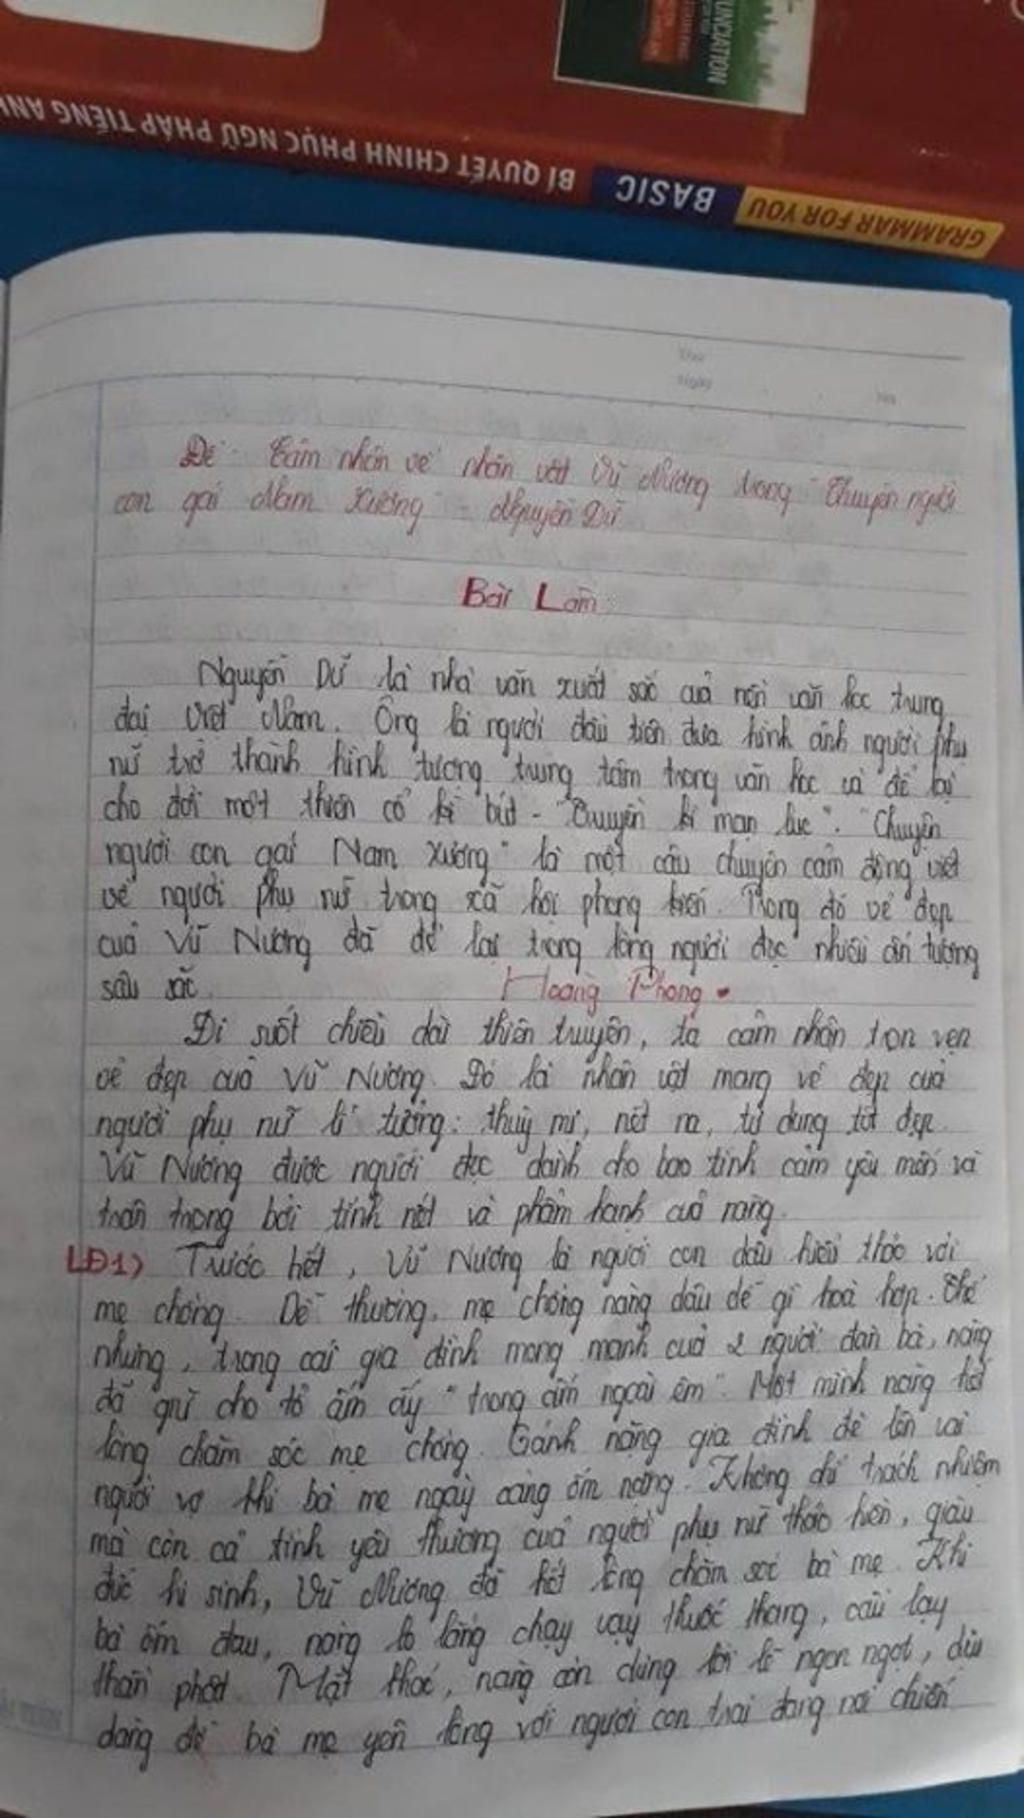 UNCIATION
BÍ QUYẾT CHINH PHỤC NGỮ PHÁP TIẾNG ANH
BASIC
GRAMMAR FOR YOU
Thứ
Ngày
No
Đề: Cảm nhận về nhân vật Vũ Nương trong "Chuyện người
con gái Nam Xương" - Nguyễn Dữ
Bài Làm:
Nguyễn Dữ là nhà văn xuất sắc của nền văn học trung
đại Việt Nam. Ông là người đầu tiên đưa hình ảnh người phụ
nữ trở thành hình tượng trung tâm trong văn học và để lại
cho đời một thiên cổ kì bút - "Truyền kì mạn lục". "Chuyện
người con gái Nam Xương" là một câu chuyện cảm động viết
về người phụ nữ trong xã hội phong kiến. Trong đó vẻ đẹp
của Vũ Nương đã để lại trong lòng người đọc nhiều ấn tượng
sâu sắc.
Hoàng Phong
Đi suốt chiều dài thiên truyện, ta cảm nhận trọn vẹn
vẻ đẹp của Vũ Nương. Đó là nhân vật mang vẻ đẹp của
người phụ nữ lí tưởng: thuỳ mị, nết na, tư dung tốt đẹp.
Vũ Nương được người đọc dành cho bao tình cảm yêu mến và
trân trọng bởi tính nết và phẩm hạnh của nàng.
LĐ1) Trước hết, Vũ Nương là người con dâu hiếu thảo với
mẹ chồng. Dễ thường, mẹ chồng nàng dâu dễ gì hoà hợp. Thế
nhưng, trong cái gia đình mong manh của 2 người đàn bà, nàng
đã giữ cho tổ ấm ấy "trong ấm ngoài êm". Một mình nàng hết
lòng chăm sóc mẹ chồng. Gánh nặng gia đình đè lên vai
người vợ khi bà mẹ ngày càng ốm nặng. Không chỉ trách nhiệm
mà còn cả tình yêu thương của người phụ nữ thảo hiền, giàu
đức hi sinh, Vũ Nương đã hết lòng chăm sóc bà mẹ. Khi
bà ốm đau, nàng lo lắng chạy vạy thuốc thang, cầu lạy
thần phật. Mặt khác, nàng còn dùng lời lẽ ngon ngọt, dịu
dàng để bà mẹ yên lòng với người con trai đang nơi chiến